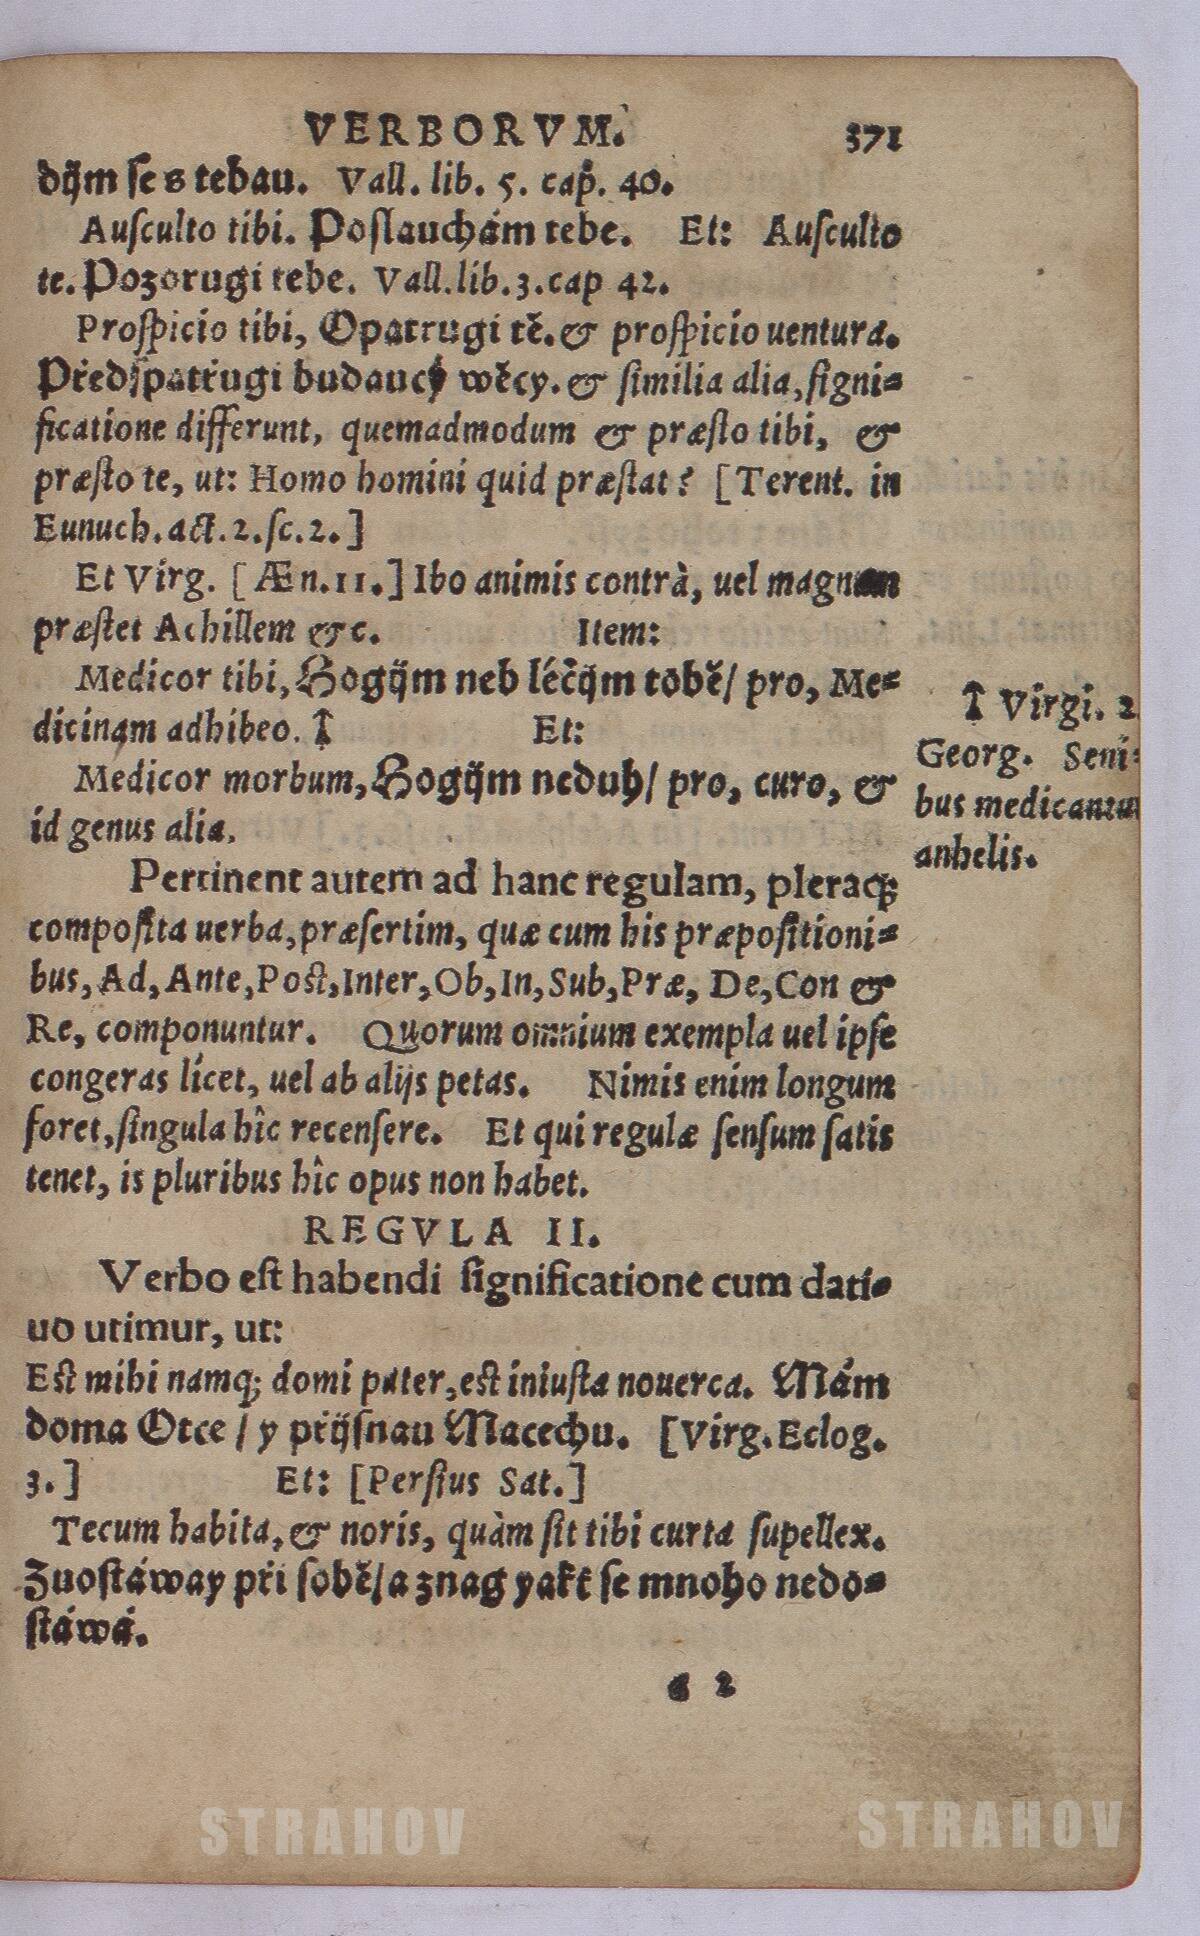 VERBORVM. 371
dijm se s tebau. Vall. lib. 5. cap. 40.
Ausculto tibi. Poslauchám tebe. Et: Ausculto
te. Pozorugi tebe. Vall. lib. 3. cap 42.
Prospicio tibi, Opatrugi tě. & prospicio uentura.
Předspatřugi budaucý wěcy. & similia alia, signi=
ficatione differunt, quemadmodum & præsto tibi, &
præsto te, ut: Homo homini quid præstat? [Terent. in
Eunuch. act. 2. sc. 2.]
Et Virg. [Æn. 11.] Ibo animis contrà, uel magnum
præstet Achillem &c. Item:
Medicor tibi, Hogijm neb léčijm tobě/ pro, Me=
dicinam adhibeo. † Et:
Medicor morbum, Hogijm neduh/ pro, curo, &
id genus alia.
Pertinent autem ad hanc regulam, pleraq;
composita uerba, præsertim, quæ cum his præpositioni=
bus, Ad, Ante, Post, Inter, Ob, In, Sub, Præ, De, Con &
Re, componuntur. Quorum omnium exempla uel ipse
congeras lícet, uel ab alijs petas. Nimis enim longum
foret, singula hîc recensere. Et qui regulæ sensum satis
tenet, is pluribus hîc opus non habet.
REGVLA II.
Verbo est habendi significatione cum dati=
uo utimur, ut:
Est mihi namq; domi pater, est iniusta nouerca. Mám
doma Otce / y přijsnau Macechu. [Virg. Eclog.
3.] Et: [Persius Sat.]
Tecum habita, & noris, quàm sit tibi curta supellex.
Zuostáway při sobě/ a znag yakť se mnoho nedo=
stáwá.
G 2
† Virgi. 2.
Georg. Seni=
bus medicantur
anhelis.
STRAHOV STRAHOV